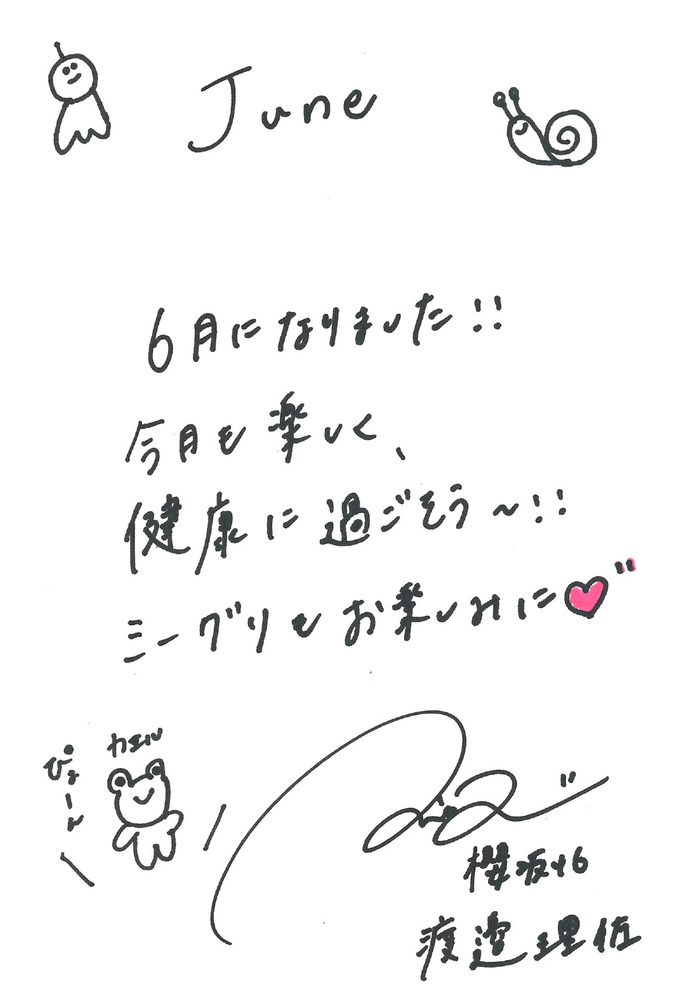 June
6月になりました!!
今月も楽しく、
健康に過ごそう〜!!
ミーグリもお楽しみに♥"
カエル
ぴょーん
櫻坂46
渡邉理佐